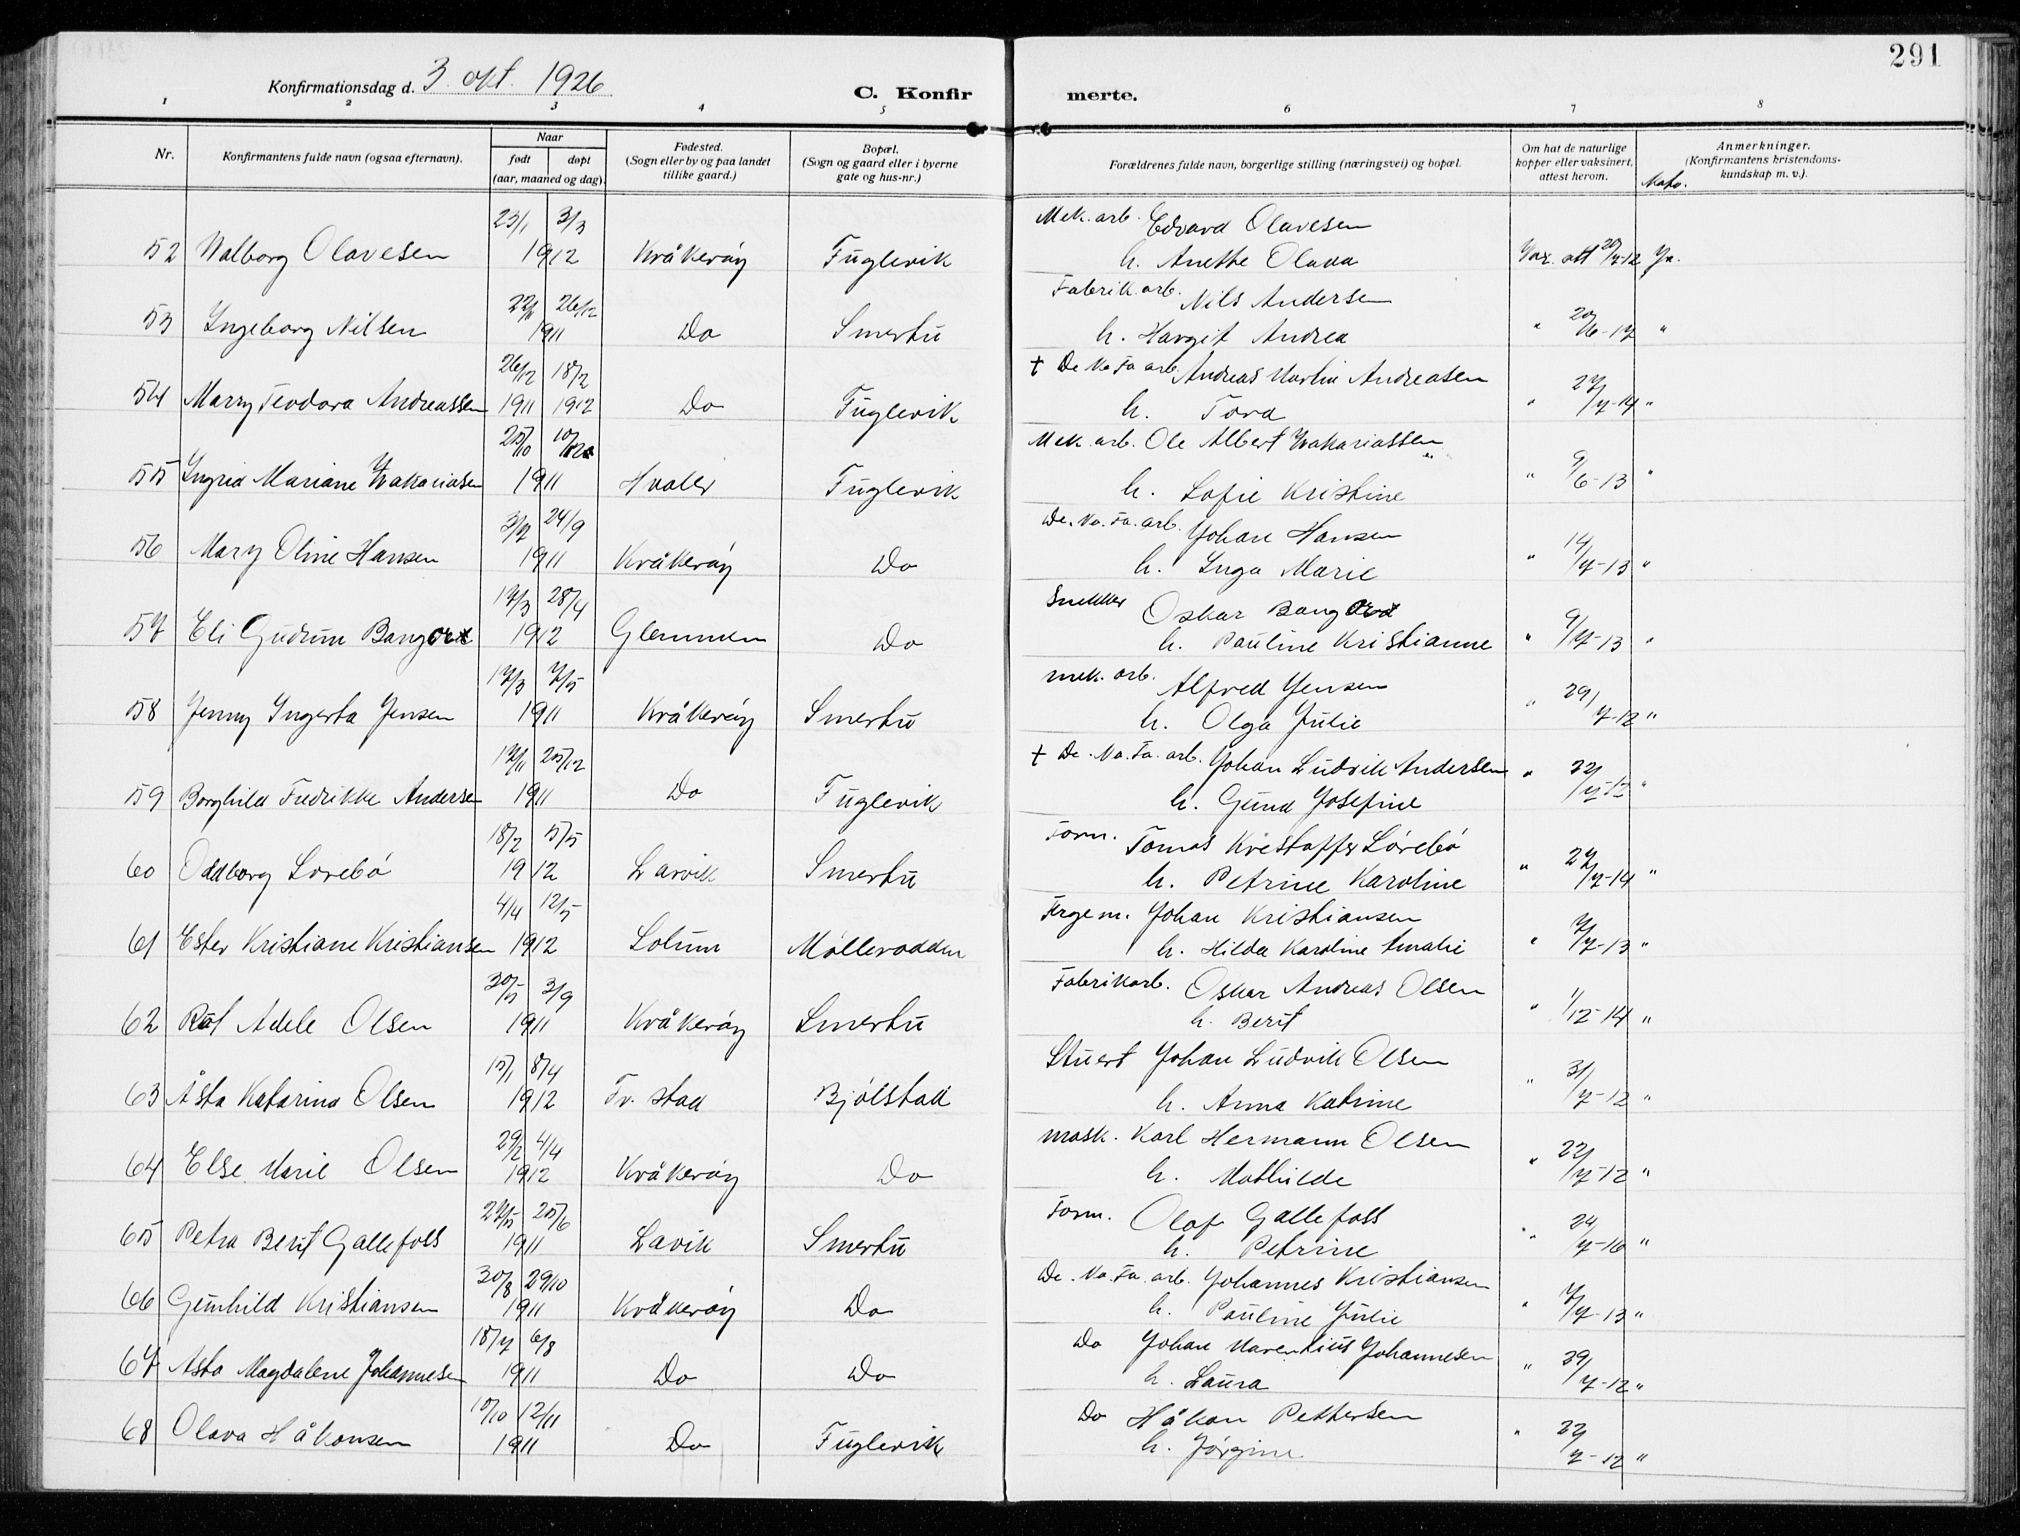 291
Konfirmationsdag d. 3. okt. 1926
C. Konfirmerte.
1 2 3 4 5 6 7 8
Nr. Konfirmantens fulde navn (ogsaa efternavn). Naar født døpt (aar, maaned og dag). Fødested. (Sogn eller by og paa landet tillike gaard.) Bopæl. (Sogn og gaard eller i byerne gate og hus-nr.) Forældrenes fulde navn, borgerlige stilling (næringsvei) og bopæl. Om hat de naturlige kopper eller vaksinert, attest herom. Anmerkninger. (Konfirmantens kristendoms-kundskap m. v.).
52 Valborg Olavesen 23/1 3/3 1912 Kråkerøy Fuglevik Mek. arb. Edvard Olavesen
h. Anethe Olava Vax. att 20/7-12 Ja.
53 Ingeborg Nilsen 26/12 1911 Do Smertu Fabrik. arb. Nils Andersen
h. Hargit Andrea " 20/6-17 "
54 Marry Teodora Andreassen 26/12 1911 18/2 1912 Do Fuglevik † De No Fa arb. Andreas Martin Andreasen
h. Tora " 27/7-14 "
55 Ingrid Mariane Zakariasen 25/10 1911 Hvaler Fuglevik Mek. arb. Ole Albert Zakariassen
h. Sofie Kristine " 9/6-13 "
56 Mary Oline Hansen 3/7 24/9 1911 Kråkerøy Do De. No. Fa. arb. Johan Hansen
h. Inga Marie " 14/7-13 "
57 Eli Gudrun Bang 17/3 28/4 1912 Glemmen Do Snekker Oskar Bang
h. Pauline Kristianne " 9/7-13 "
58 Jenny Ingerta Jensen 17/3 7/5 1911 Kråkerøy Smertu mek. arb. Alfred Jensen
h. Olga Julie " 29/7-12 "
59 Borghild Fredrikke Andersen 17/11 25/12 1911 Do Fuglevik † De. No. Fa. arb. Johan Ludvik Andersen
h. Gund Josefine "
60 Oddborg Sørebø 18/2 5/5 1912 Larvik Smertu Form. Tomas Kristoffer Sørebø
h. Petrine Karoline " 27/7-14 "
61 Ester Kristiane Kristiansen 4/4 12/5 1912 Solum Møllerodden Fergem. Johan Kristiansen
h. Hilda Karoline Amalie " 7/7-13 "
62 Rut Adele Olsen 30/5 3/9 1911 Kråkerøy Smertu Fabrikarb. Oskar Andreas Olsen
h. Berit " 1/12-14 "
63 Åsta Katarina Olsen 15/1 8/4 1912 Fr. stad Bjølstad Stuert Johan Ludvik Olsen
h. Anna Katrine " 31/7-12 "
64 Else Marie Olsen 29/2 4/4 1912 Kråkerøy Do mask. Karl Hermann Olsen
h. Mathilde " 22/7-12 "
65 Petra Berit Gallefoss 27/5 25/6 1911 Lavik Smertu Form. Olaf Gallefoss
h. Petrine " 24/7-16 "
66 Gunhild Kristiansen 30/8 29/10 1911 Kråkerøy Do De. No. Fa. arb. Johannes Kristiansen
h. Pauline Julie " 7/7-13 "
67 Asta Magdalene Johannesen 18/7 6/8 1911 Do Do Do Johan Marentius Johannesen
h. Laura "
68 Olava Håkonsen 10/10 12/11 1911 Do Fuglevik Do Håkon Pettersen
h. Jørgine " 22/7-12 "